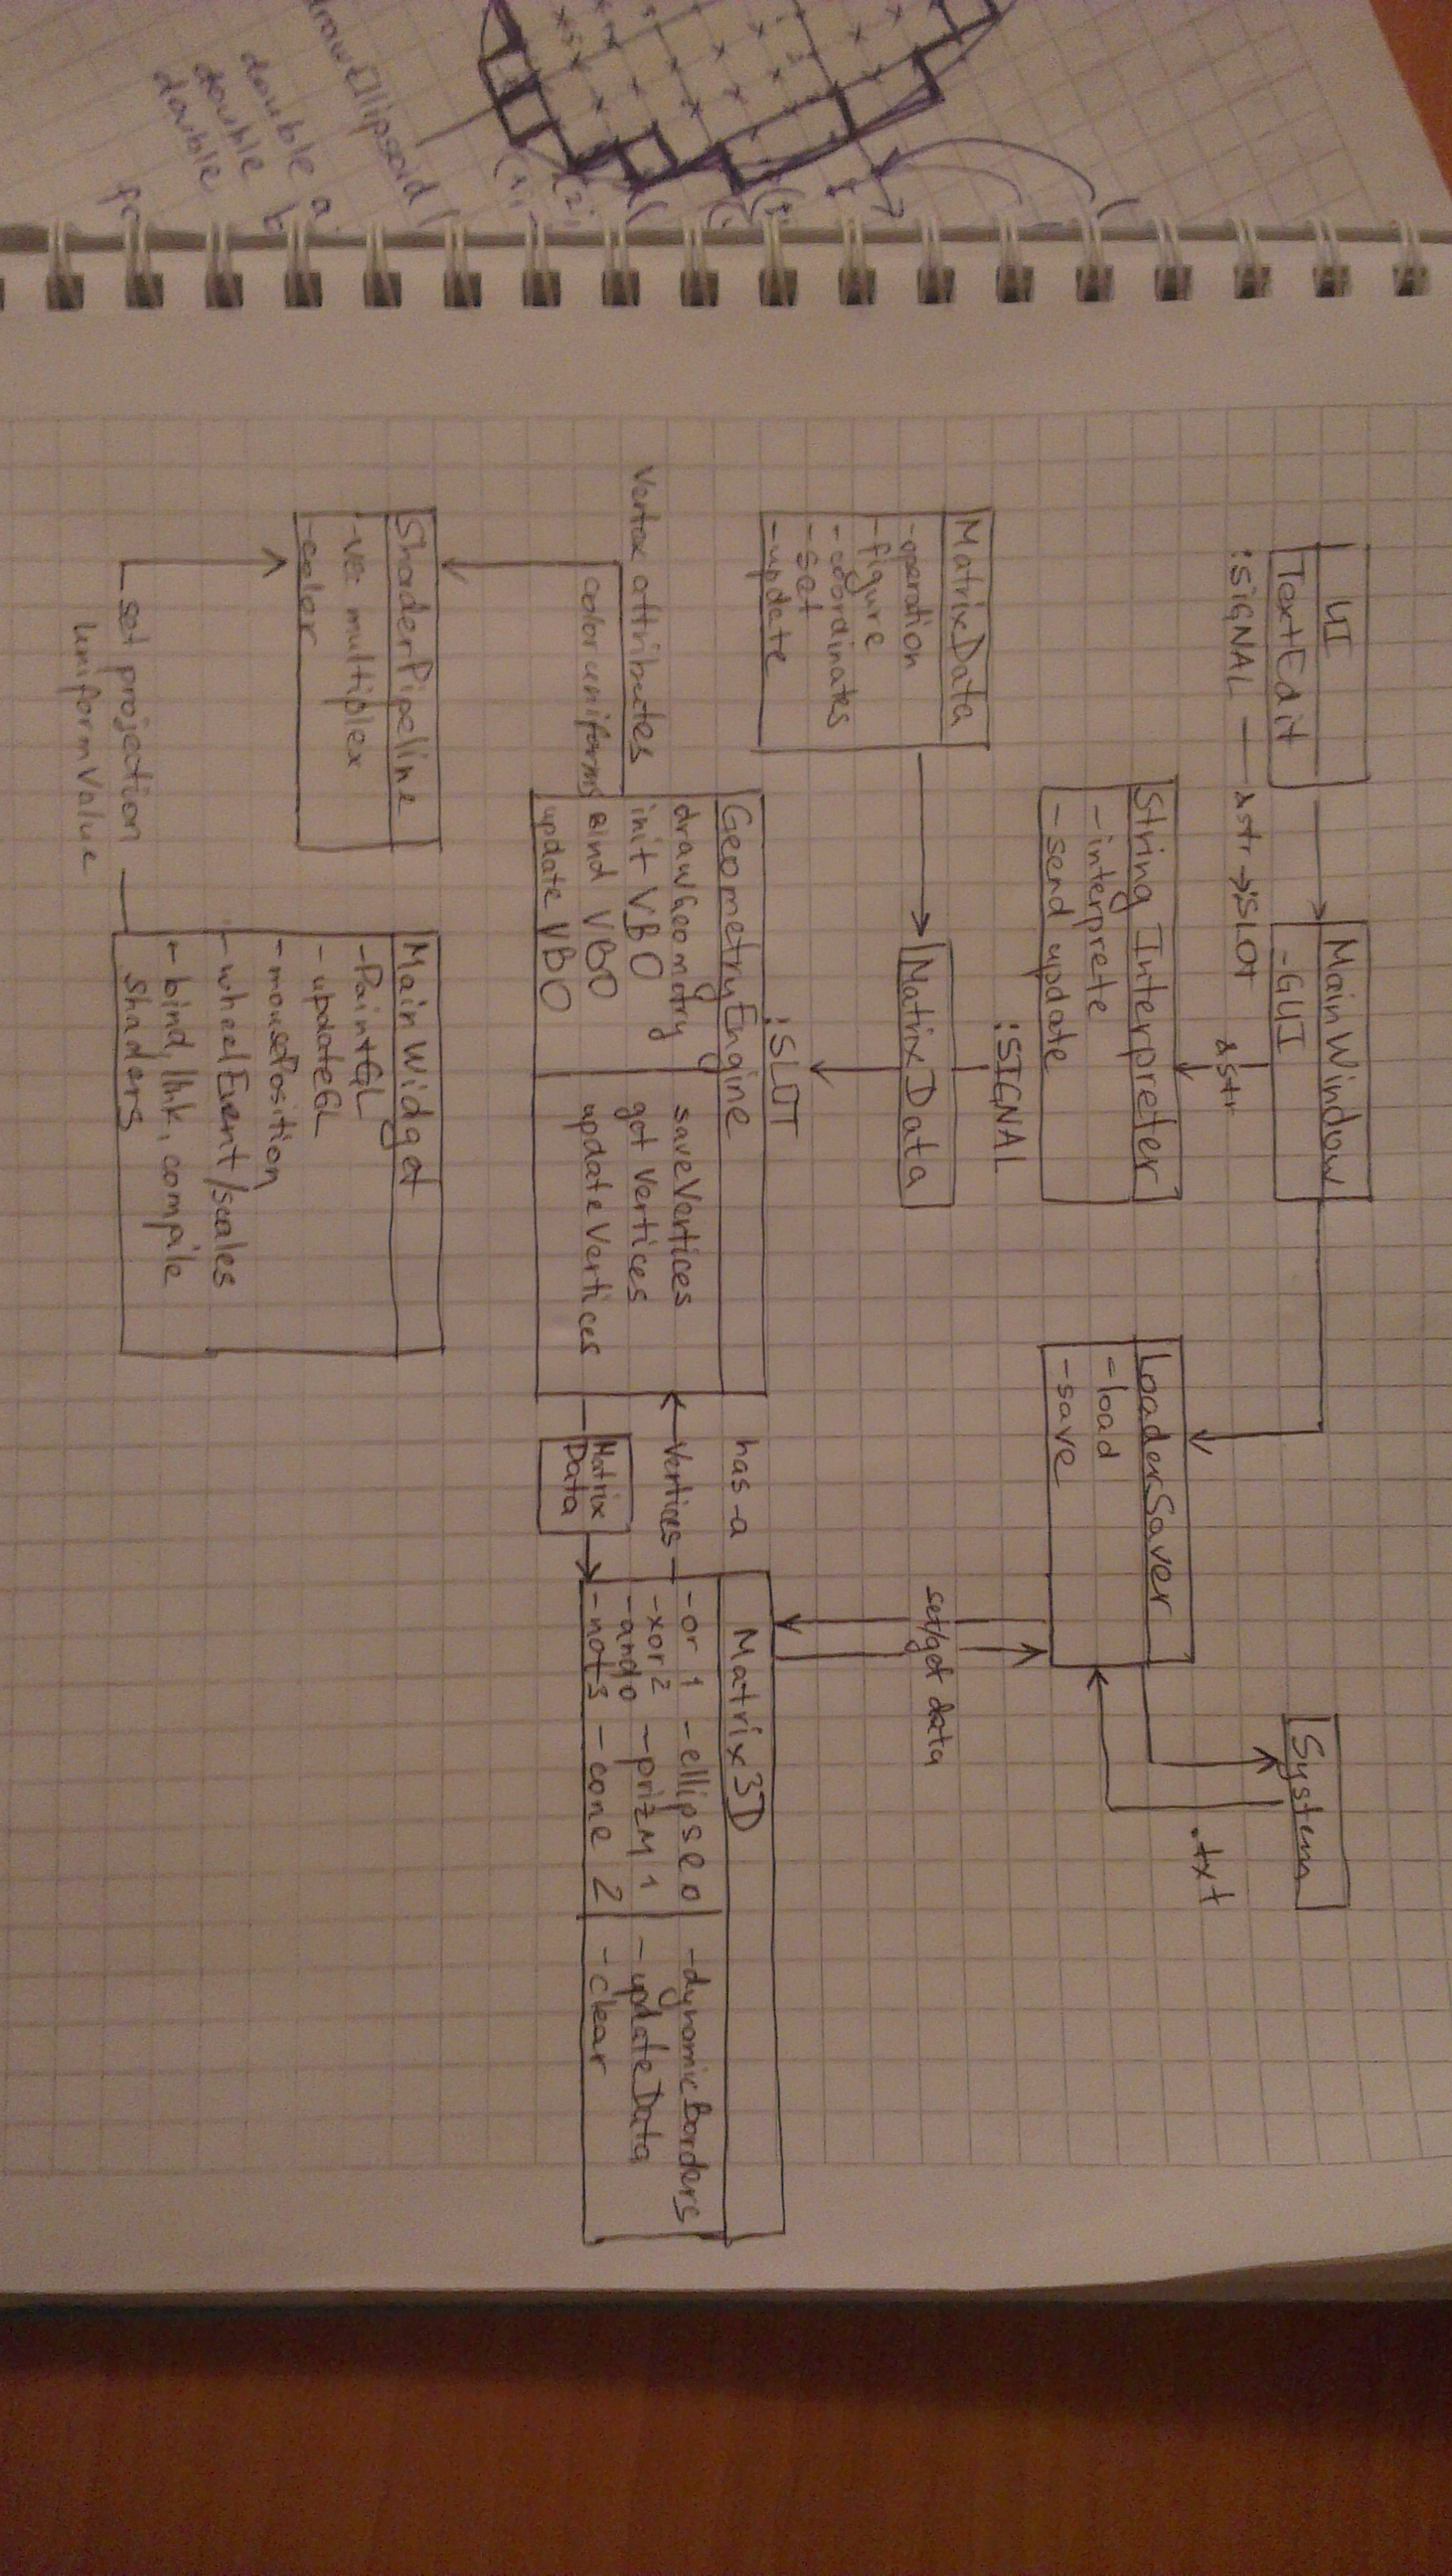 UI
TextEdit
:SIGNAL
&str
:SLOT
MainWindow
-GUI
&str
String Interpreter
-interprete
-send update
:SIGNAL
LoaderSaver
-load
-save
System
.txt
set/get data
MatrixData
-operation
-figure
-coordinates
-set
-update
MatrixData
:SLOT
GeometryEngine
drawGeometry
init VBO
Bind VBO
update VBO
saveVertices
get Vertices
updateVertices
has-a
Vertices
Matrix
Data
Matrix3D
-or 1
-xor 2
-and 0
-not 3
-ellipse 0
-prizm 1
-cone 2
-dynamicBorders
-updateData
-clear
Vertex attributes
color uniforms
ShaderPipeline
multiplex
-color
set projection
UniformValue
MainWidget
-PaintGL
-updateGL
-mousePosition
-wheelEvent/scales
-bind, link, compile
shaders
drawEllipsoid(
double a
double b
double